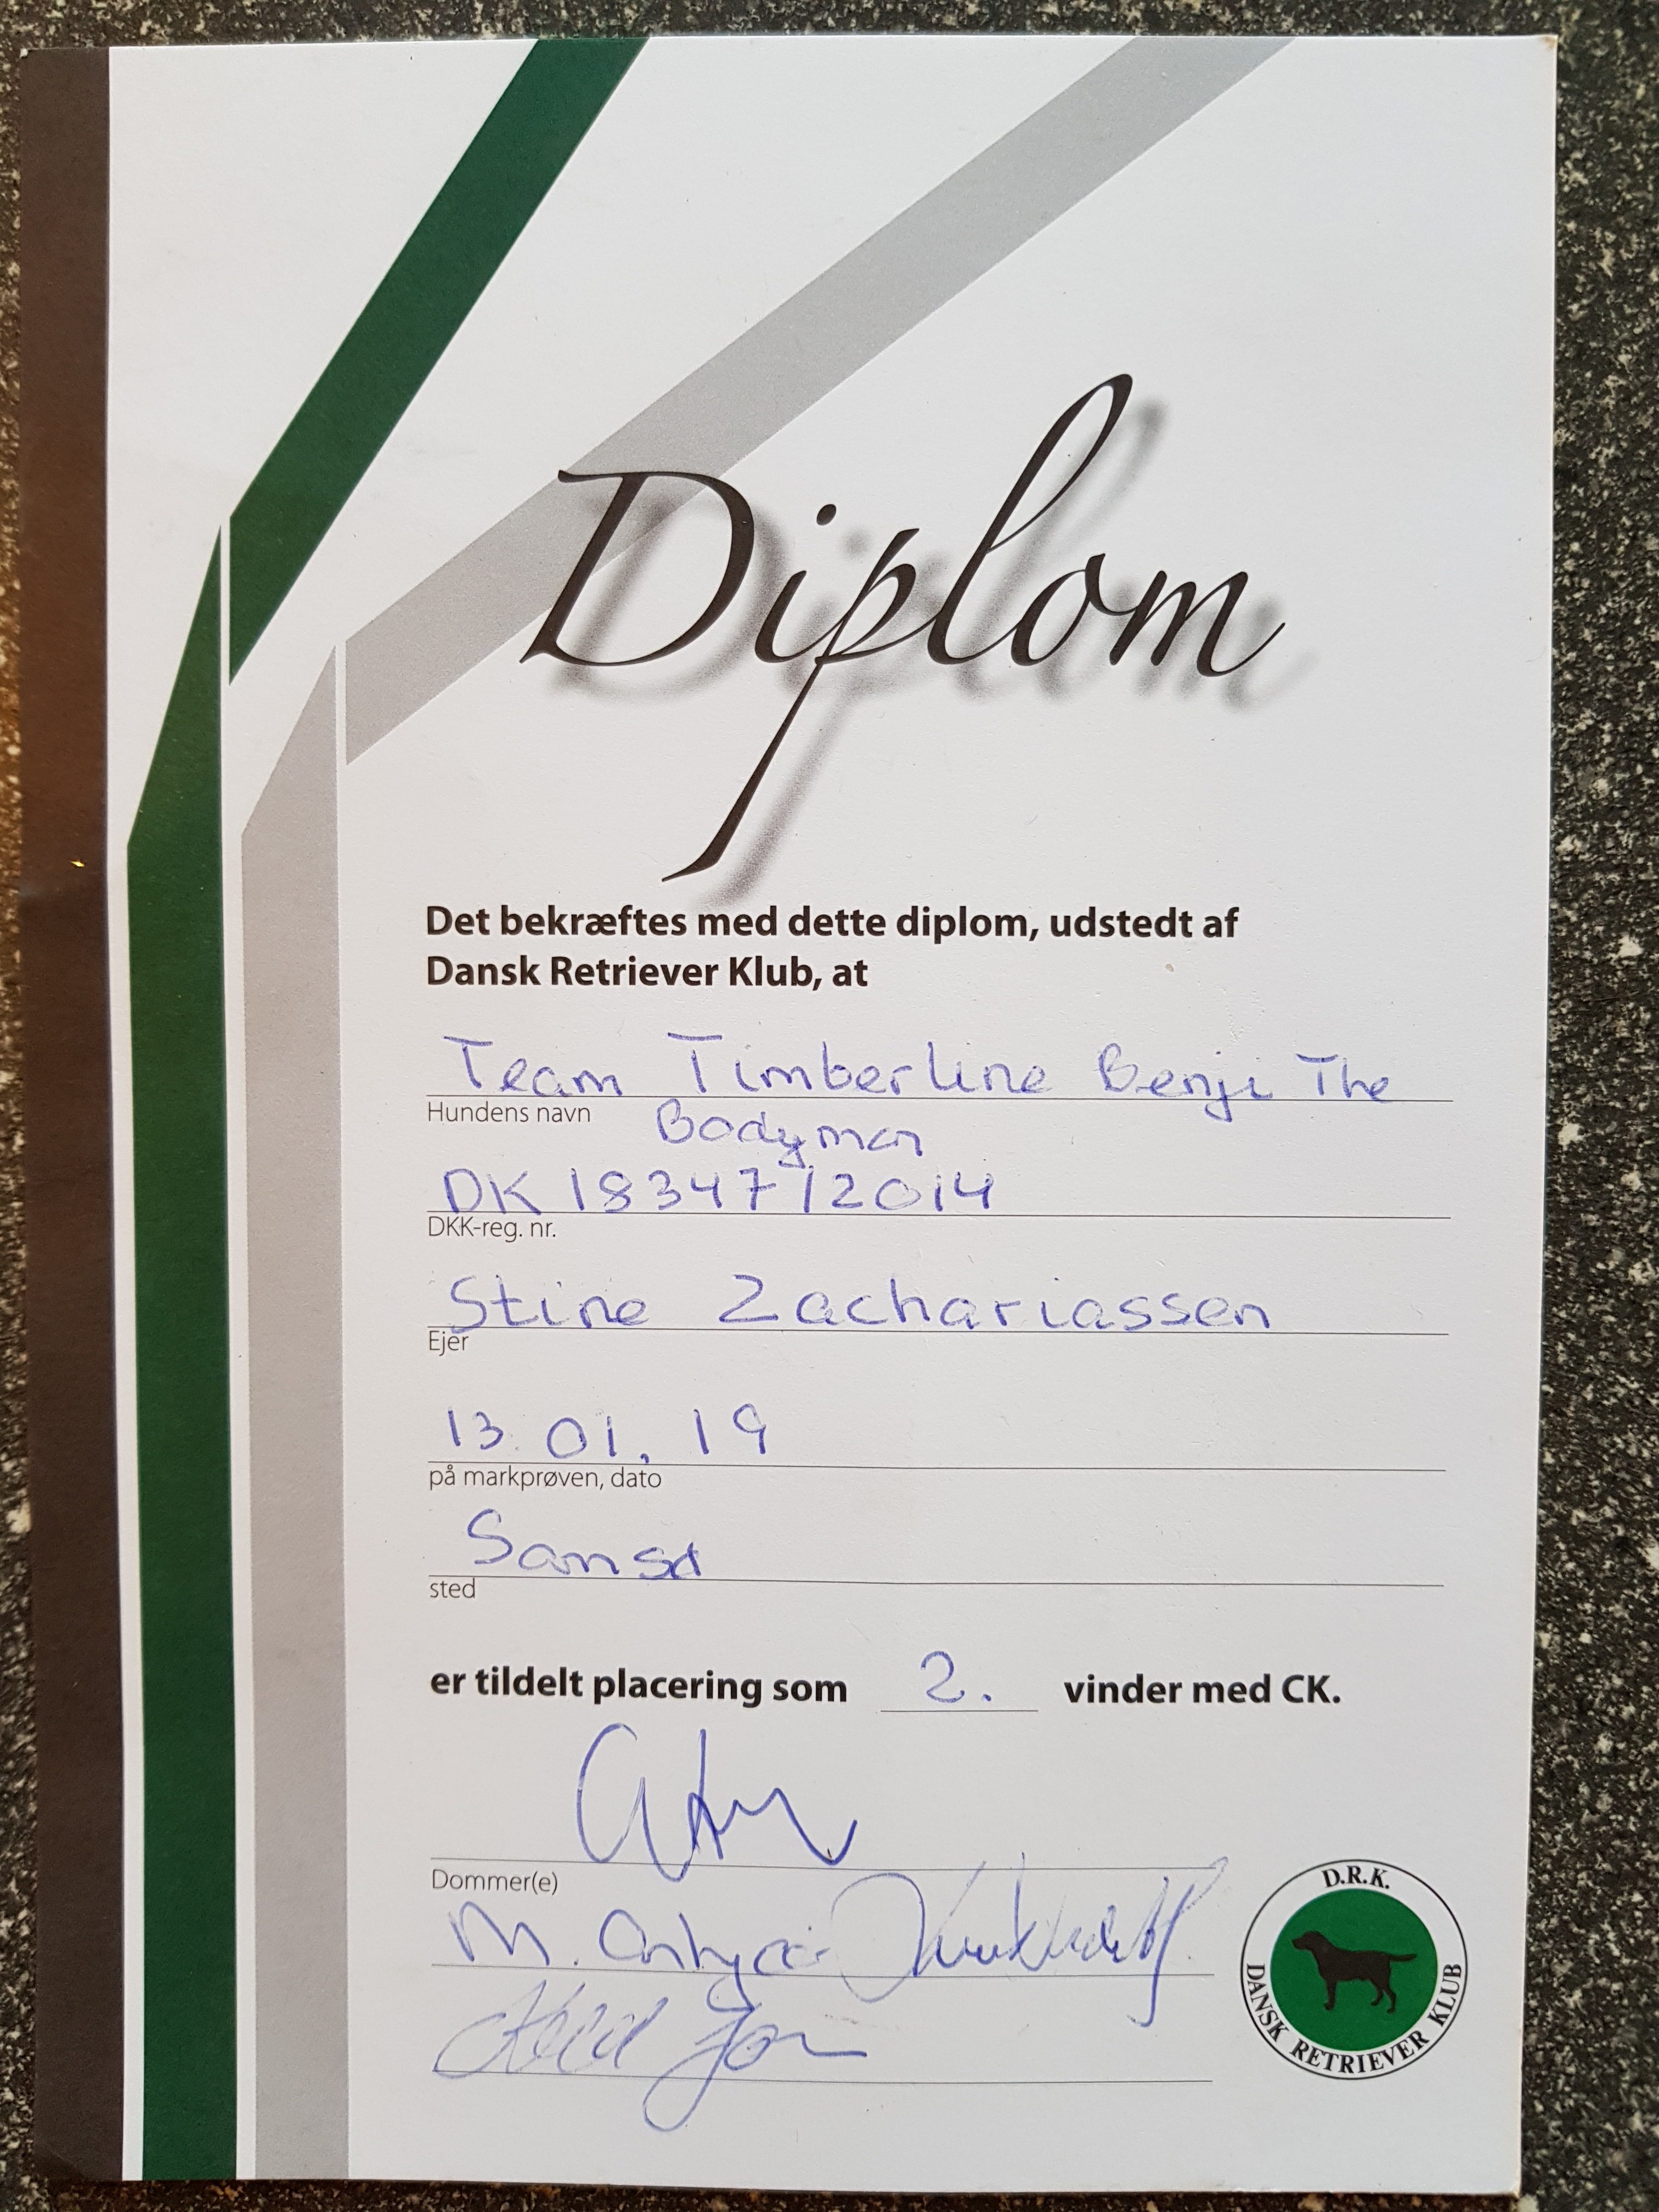 Diplom
Det bekræftes med dette diplom, udstedt af
Dansk Retriever Klub, at
Team Timberline Benji The
Hundens navn
Bodyman
DK 18347/2014
DKK-reg. nr.
Stine Zachariassen
Ejer
13.01.19
på markprøven, dato
Samsø
sted
er tildelt placering som 2. vinder med CK.
Dommer(e)
M.
D.R.K.
DANSK RETRIEVER KLUB